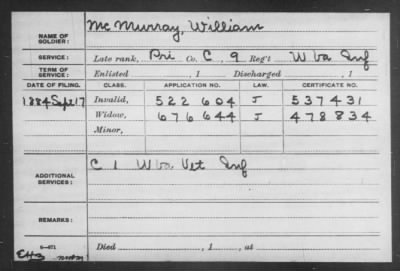 NAME OF SOLDIER: Mc Murray, William
SERVICE: Late rank, Pri Co. C, 9 Reg't W Va Inf
TERM OF SERVICE: Enlisted , 1 Discharged , 1
DATE OF FILING. CLASS. APPLICATION NO. LAW. CERTIFICATE NO.
1884 Sept 17 Invalid, 522 604 J 537431
Widow, 676644 J 478834
Minor,
ADDITIONAL SERVICES: C 1 W Va Vet Inf
REMARKS:
Died , 1 , at